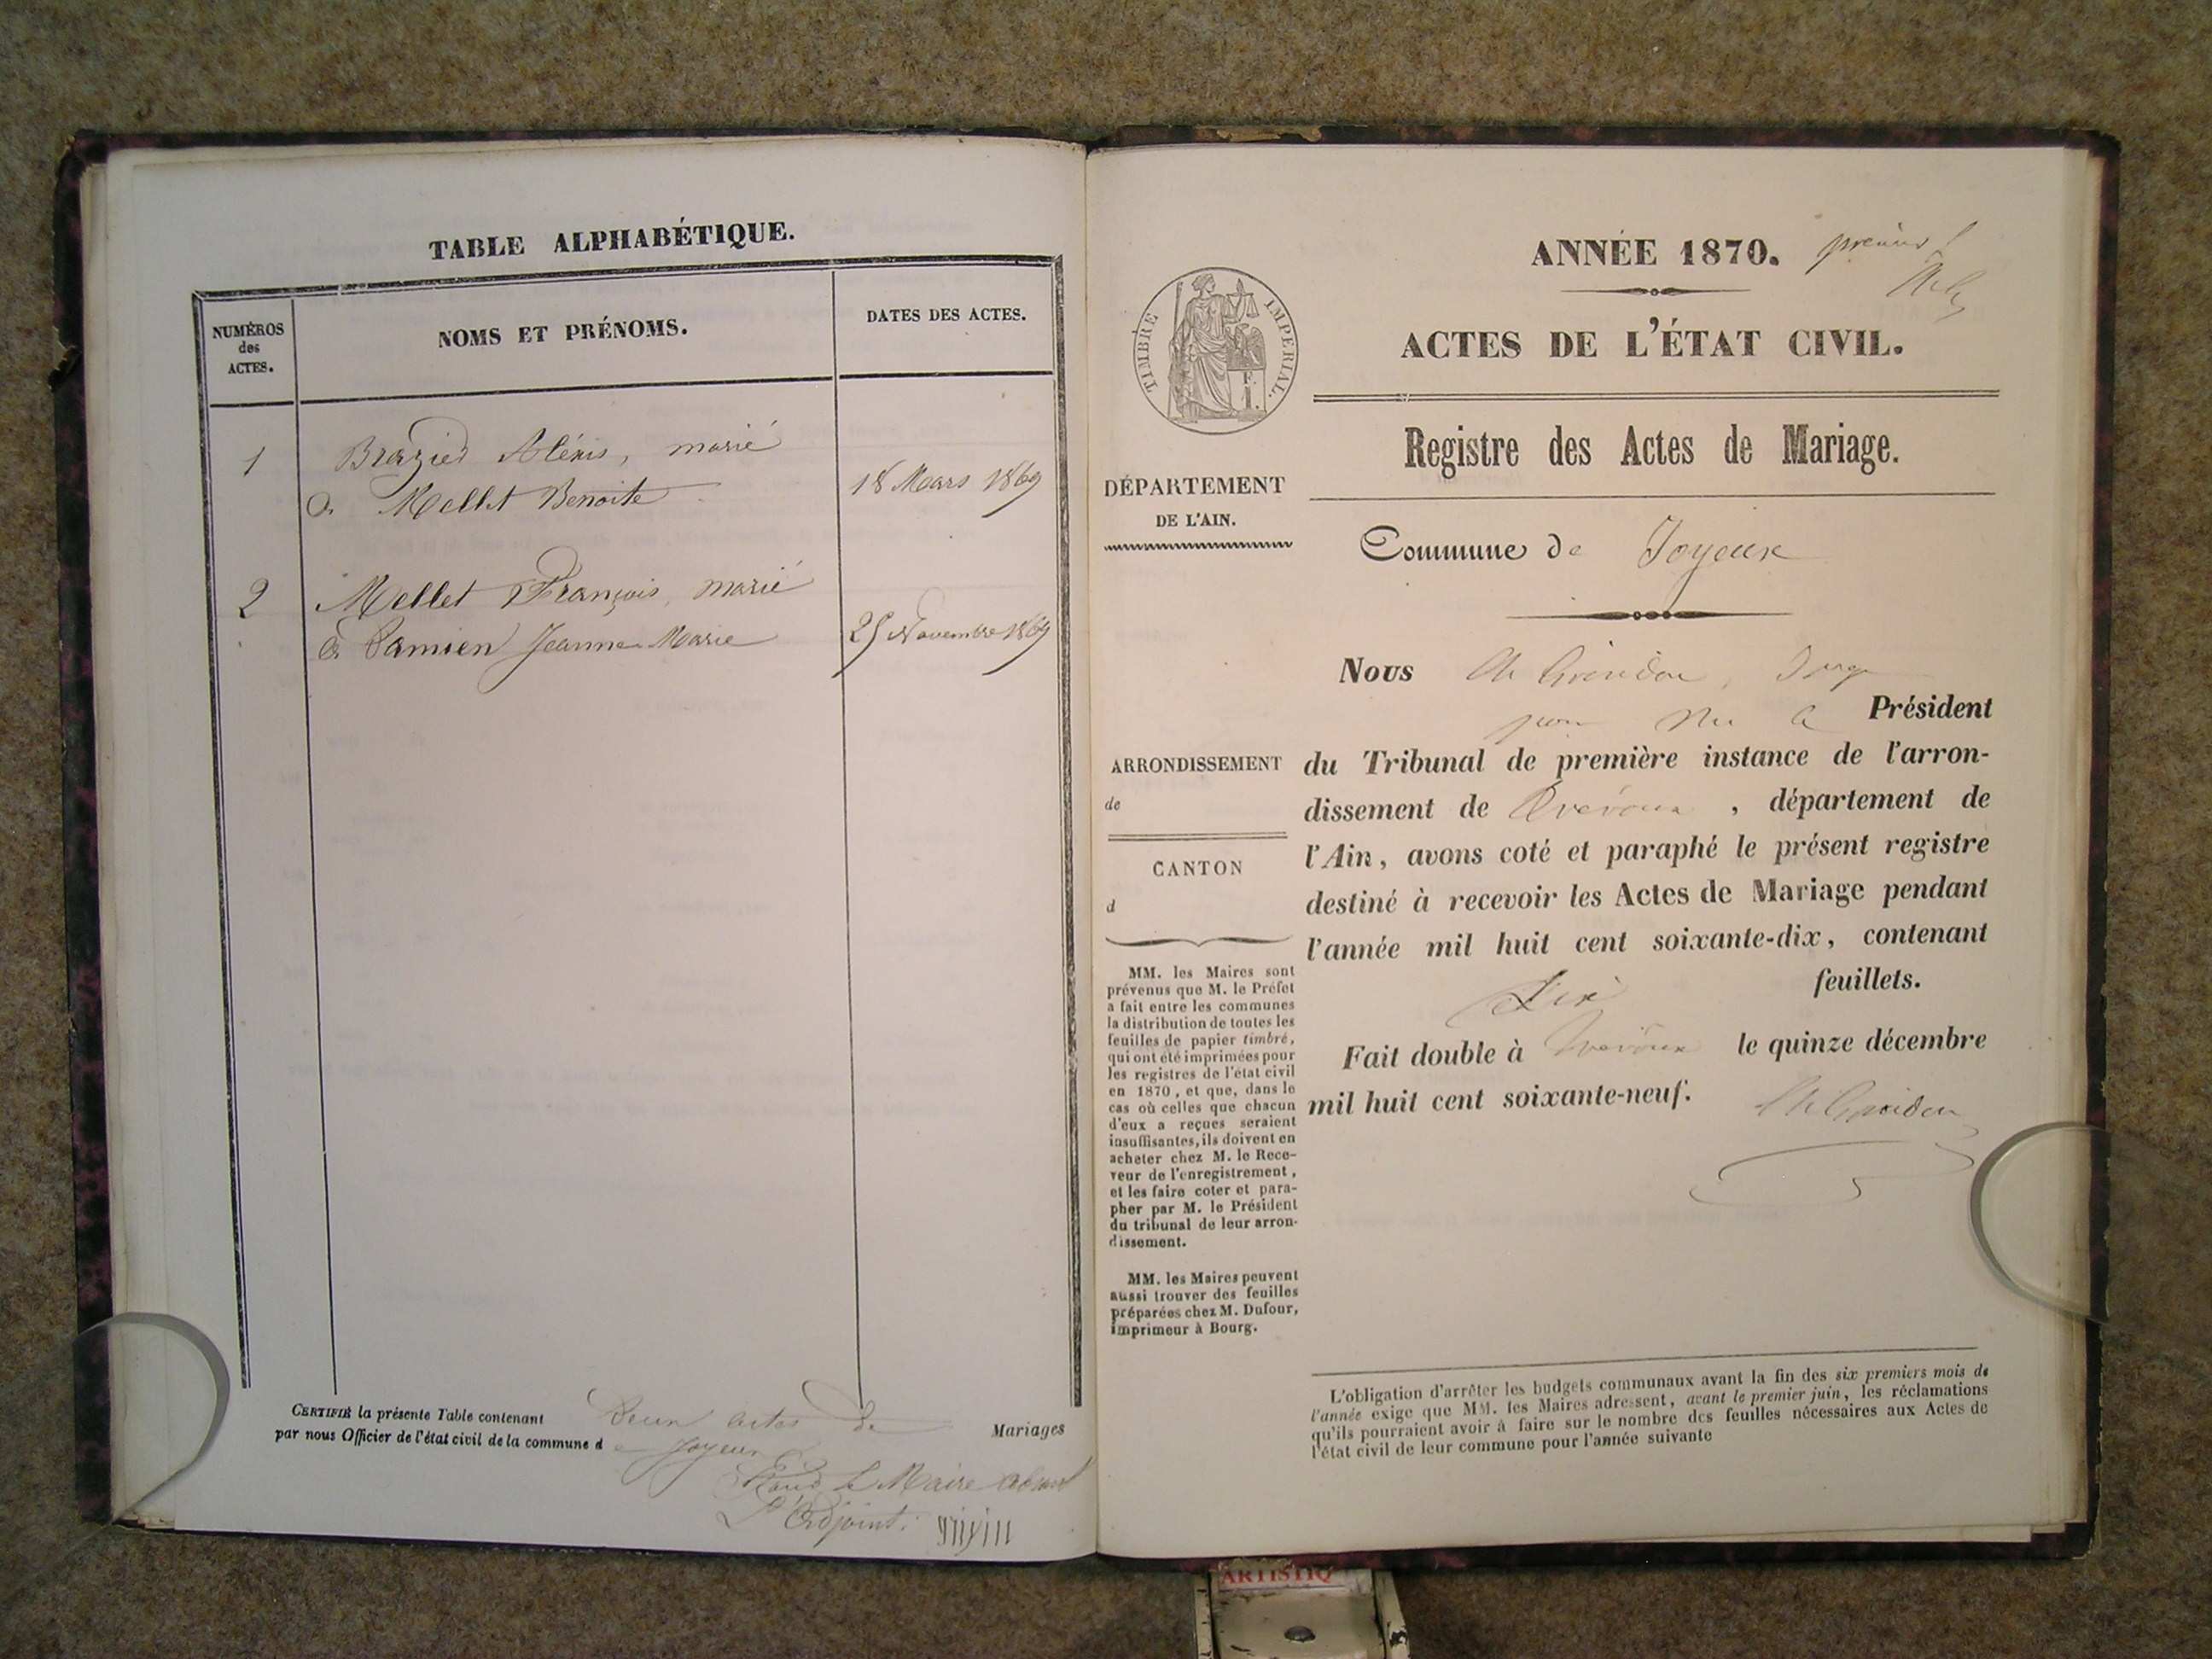 TABLE ALPHABÉTIQUE.
NUMÉROS
des
ACTES.
NOMS ET PRÉNOMS.
DATES DES ACTES.
1
Brazier Aléxis, marié
à Mellet Benoite
18 Mars 1869
2
Mellet François, marié
à Damien Jeanne Marie
25 Novembre 1869
CERTIFIÉ la présente Table contenant Deux actes de Mariages
par nous Officier de l'état civil de la commune de Joyeux
Pour le Maire absent
L'adjoint.
ANNÉE 1870.
premier f
ACTES DE L'ÉTAT CIVIL.
Registre des Actes de Mariage.
Commune de Joyeux
TIMBRE IMPÉRIAL.
DÉPARTEMENT
DE L'AIN.
ARRONDISSEMENT
de
CANTON
d
MM. les Maires sont
prévenus que M. le Préfet
a fait entre les communes
la distribution de toutes les
feuilles de papier timbré,
qui ont été imprimées pour
les registres de l'état civil
en 1870, et que, dans le
cas où celles que chacun
d'eux a reçues seraient
insuffisantes, ils doivent en
acheter chez M. le Rece-
veur de l'enregistrement,
et les faire coter et para-
pher par M. le Président
du tribunal de leur arron-
dissement.
MM. les Maires peuvent
aussi trouver des feuilles
préparées chez M. Dufour,
imprimeur à Bourg.
Nous Juge
pour Mr le Président
du Tribunal de première instance de l'arron-
dissement de Trévoux, département de
l'Ain, avons coté et paraphé le présent registre
destiné à recevoir les Actes de Mariage pendant
l'année mil huit cent soixante-dix, contenant
feuillets.
Fait double à Trévoux le quinze décembre
mil huit cent soixante-neuf.
L'obligation d'arrêter les budgets communaux avant la fin des six premiers mois de
l'année exige que MM. les Maires adressent, avant le premier juin, les réclamations
qu'ils pourraient avoir à faire sur le nombre des feuilles nécessaires aux Actes de
l'état civil de leur commune pour l'année suivante
ARTISTIQ